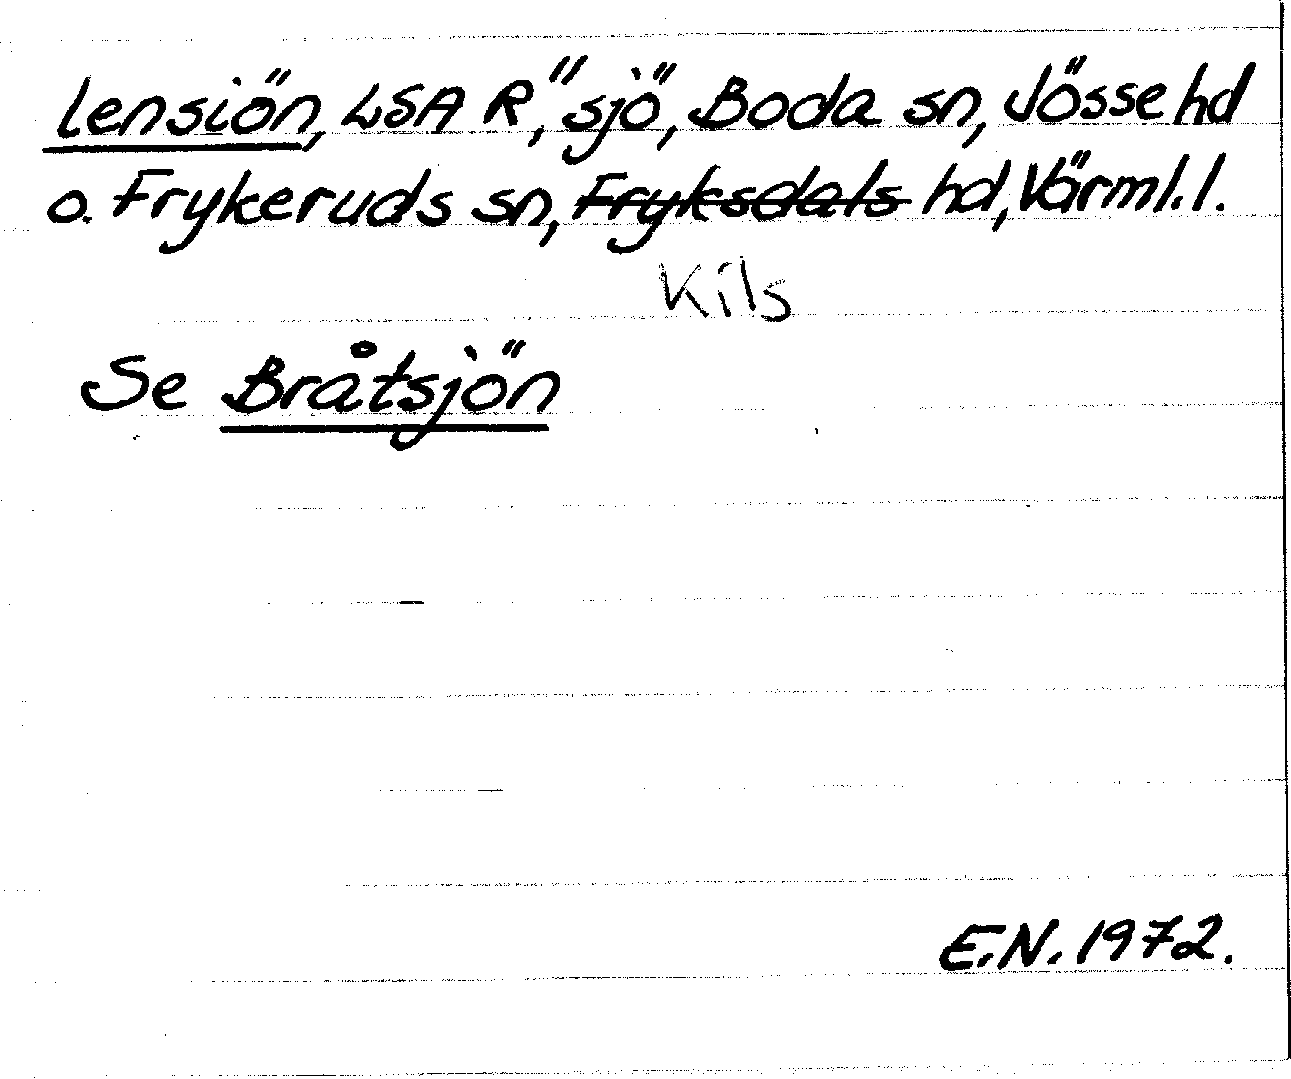 Lensiön, LSA R, "sjö", Boda sn, Jösse hd
o. Frykeruds sn, Fryksdals hd, Värml. l.
Kils
Se Bråtsjön
E.N. 1972.